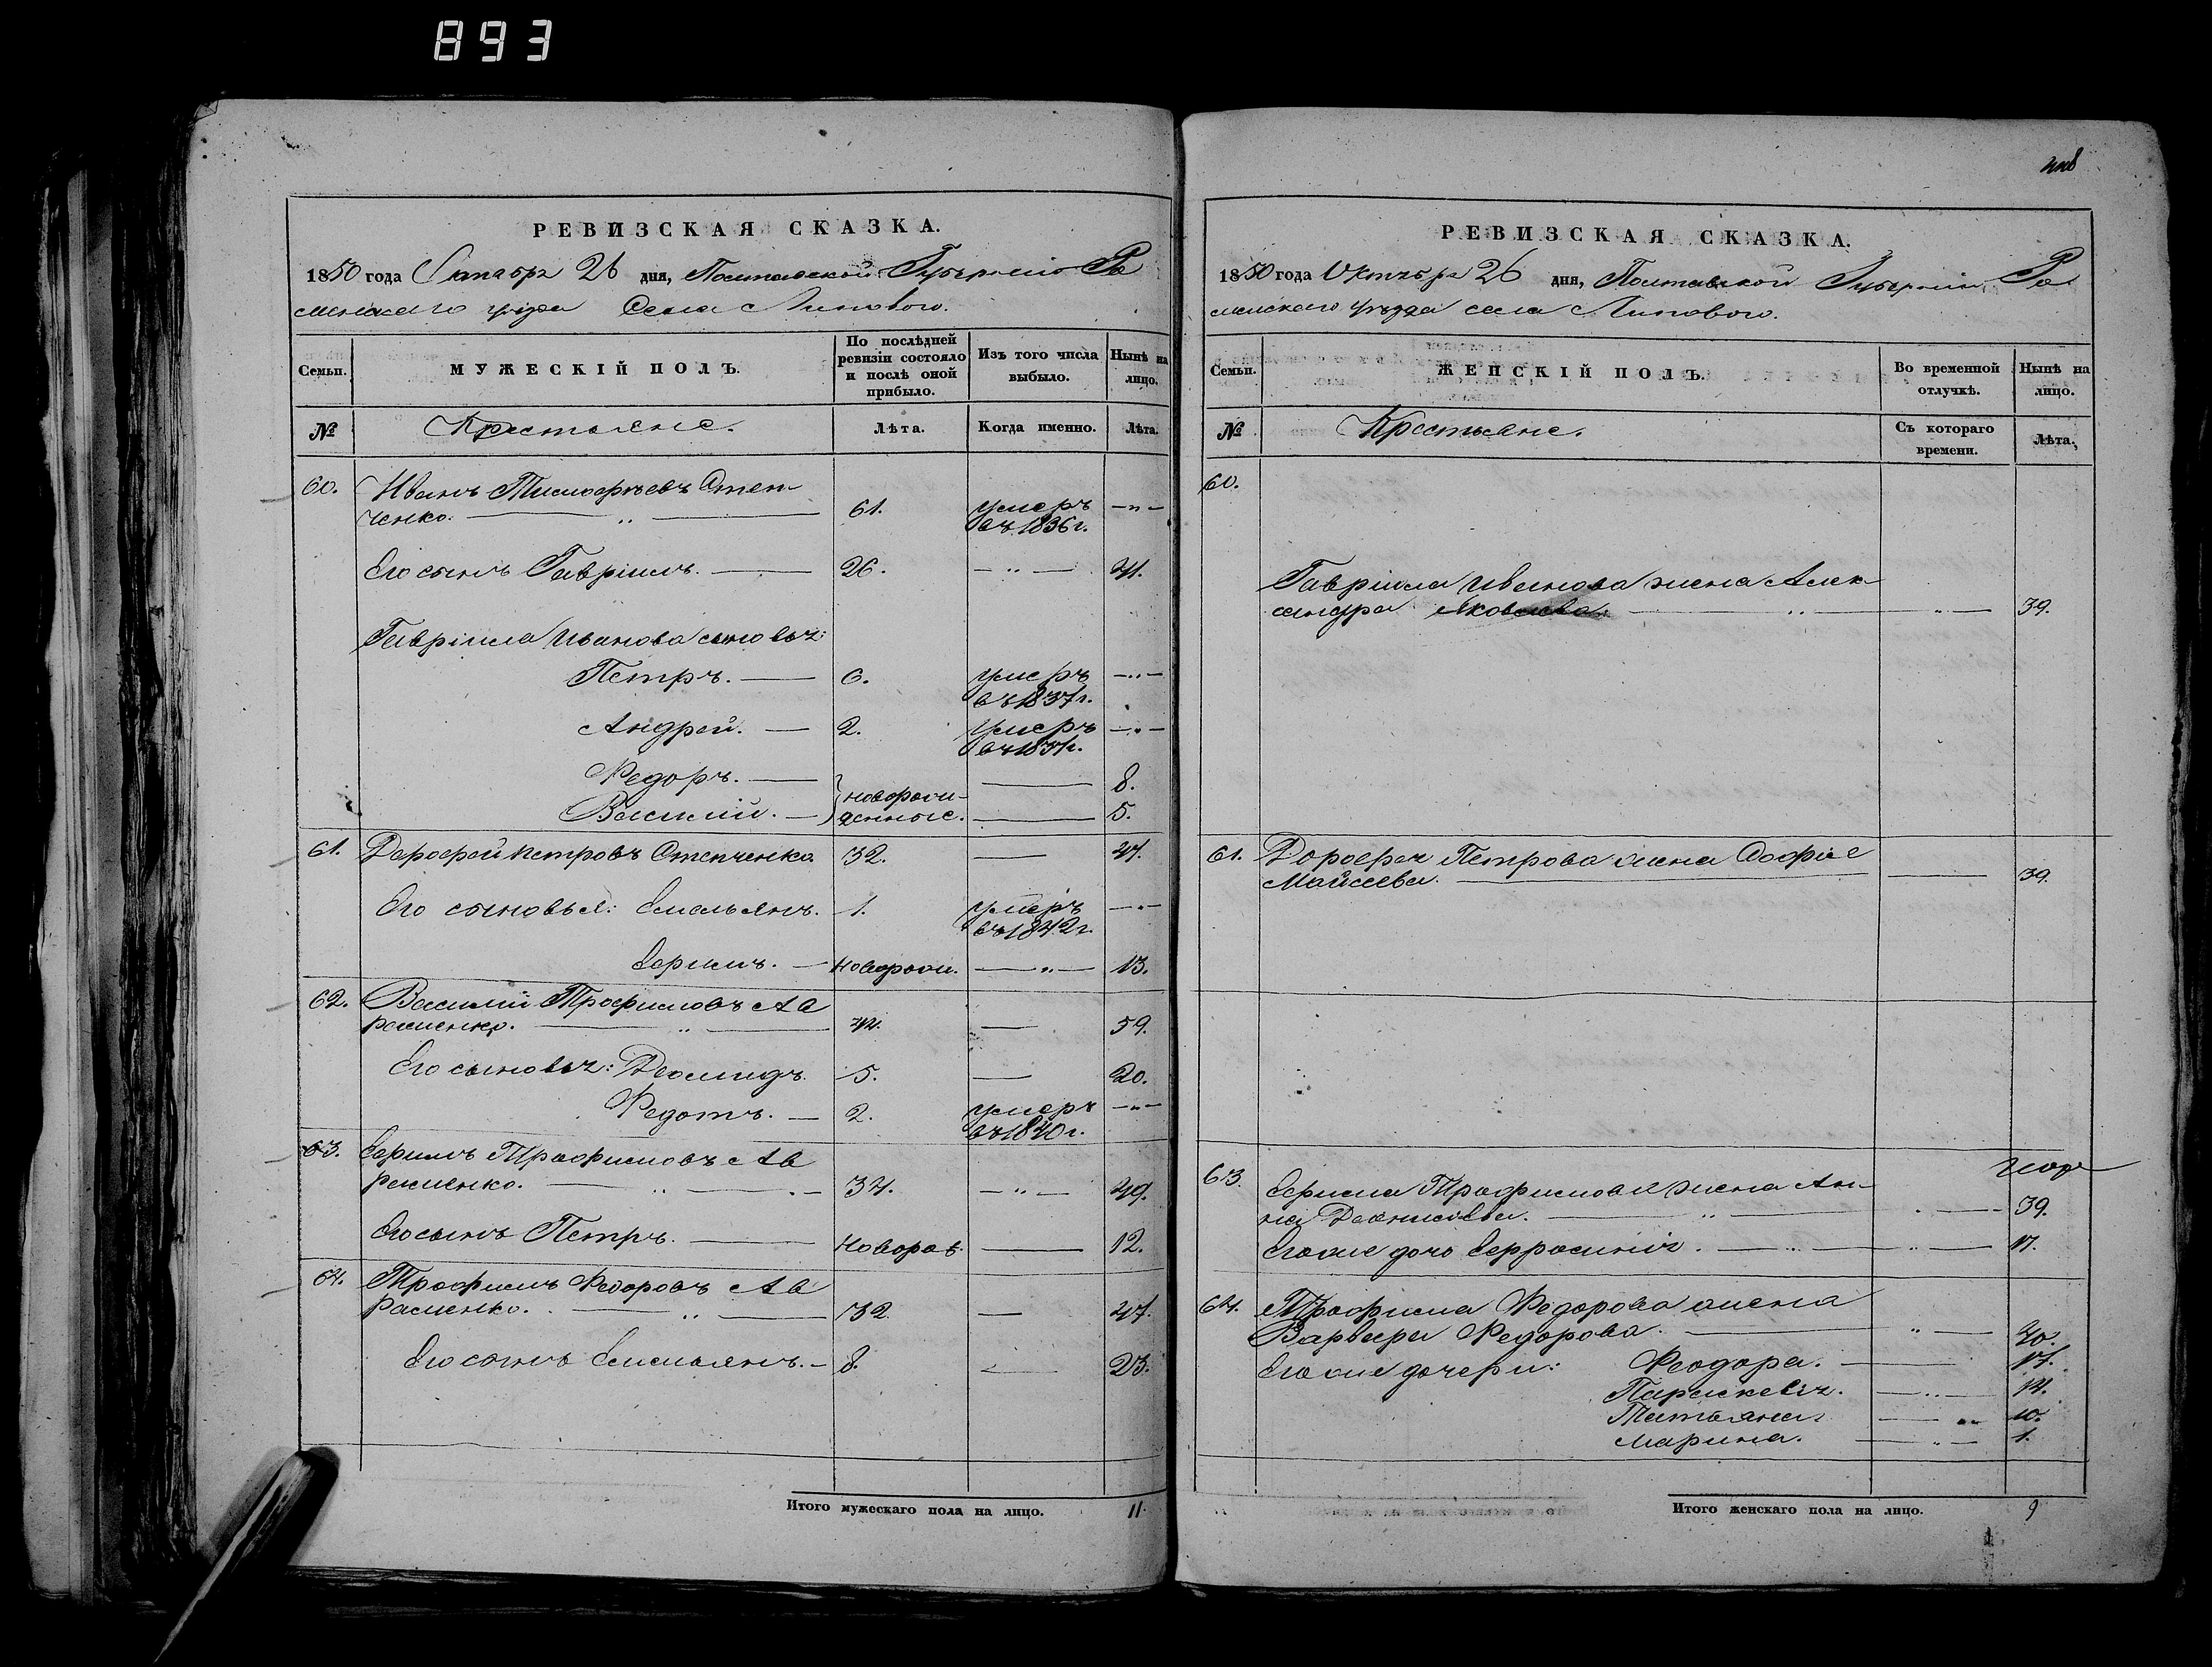 893
РЕВИЗСКАЯ СКАЗКА.
1850 года Октября 26 дня, Полтавской Губерніи Ро
менскаго уѣзда Села Липового.
Семьи.
МУЖЕСКІЙ ПОЛЪ.
По послѣдней
ревизіи состояло
и послѣ оной
прибыло.
Изъ того числа
выбыло.
Нынѣ на
лицо.
№
Крестьяне.
Лѣта.
Когда именно.
Лѣта.
60. Иванъ Тимофѣевъ Степ
ченко. 61. умеръ
въ 1836 г.
Его сынъ Гавріилъ. 26. 41.
Гавріила Иванова сыновья:
Петръ. 6. умеръ
въ 1837 г.
Андрей. 2. умеръ
въ 1837 г.
Федоръ. 8.
новорож
Василій. денные. 5.
61. Дорофей Петровъ Степченко 32. 47.
Его сыновья: Емельянъ. 1. умеръ
въ 1842 г.
Ефимъ. Новорож. 13.
62. Василій Трофимовъ Ав
раменко. 44. 59.
Его сыновья: Деомидъ. 5. 20.
Федотъ. 2. умеръ
въ 1840 г.
63. Ефимъ Трофимовъ Ав
раменко. 34. 49.
Его сынъ Петръ. Новорож. 12.
64. Трофимъ Федоровъ Ав
раменко. 32. 47.
Его сынъ Емельянъ. 8. 23.
Итого мужескаго пола на лицо. 11.
РЕВИЗСКАЯ СКАЗКА.
1850 года Октября 26 дня, Полтавской Губерніи Ро
менскаго уѣзда села Липового.
Семьи.
ЖЕНСКІЙ ПОЛЪ.
Во временной
отлучкѣ.
Нынѣ на
лицо.
№
Крестьяне.
Съ котораго
времени.
Лѣта.
60.
Гавріила Иванова жена Алек
сандра Яковлева. 39.
61. Дорофея Петрова жена Софія
Мойсеева. 39.
63. Ефима Трофимова жена Ан
на Деонисіева. 39.
Его же дочь Ефросинія. 17.
64. Трофима Федорова жена
Варвара Федорова. 40.
Его же дочери: Феодора. 17.
Параскевія. 14.
Татьяна 10.
Марина. 1.
Итого женскаго пола на лицо. 9